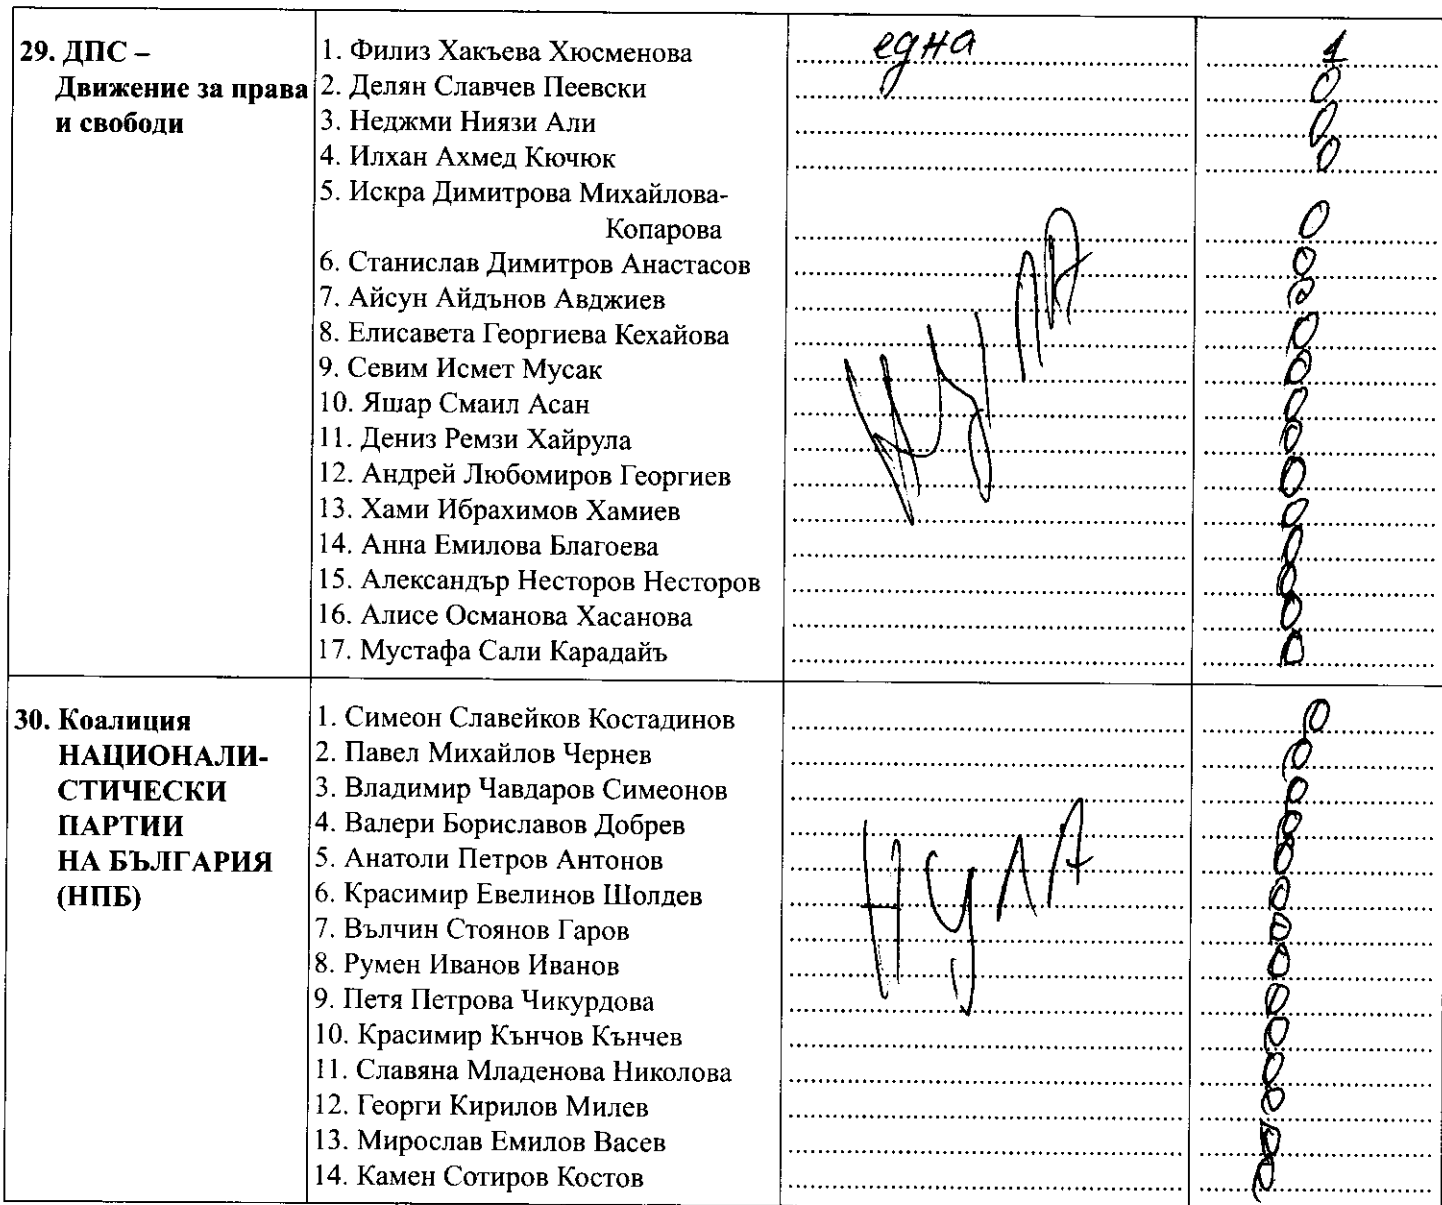 29. ДПС –
Движение за права
и свободи
1. Филиз Хакъева Хюсменова една 1
2. Делян Славчев Пеевски 0
3. Неджми Ниязи Али 0
4. Илхан Ахмед Кючюк 0
5. Искра Димитрова Михайлова-
Копарова 0
6. Станислав Димитров Анастасов 0
7. Айсун Айдънов Авджиев 0
8. Елисавета Георгиева Кехайова 0
9. Севим Исмет Мусак 0
10. Яшар Смаил Асан 0
11. Дениз Ремзи Хайрула 0
12. Андрей Любомиров Георгиев 0
13. Хами Ибрахимов Хамиев 0
14. Анна Емилова Благоева 0
15. Александър Несторов Несторов 0
16. Алисе Османова Хасанова 0
17. Мустафа Сали Карадайъ 0
нула
30. Коалиция
НАЦИОНАЛИ-
СТИЧЕСКИ
ПАРТИИ
НА БЪЛГАРИЯ
(НПБ)
1. Симеон Славейков Костадинов 0
2. Павел Михайлов Чернев 0
3. Владимир Чавдаров Симеонов 0
4. Валери Бориславов Добрев 0
5. Анатоли Петров Антонов 0
6. Красимир Евелинов Шолдев 0
7. Вълчин Стоянов Гаров 0
8. Румен Иванов Иванов 0
9. Петя Петрова Чикурдова 0
10. Красимир Кънчов Кънчев 0
11. Славяна Младенова Николова 0
12. Георги Кирилов Милев 0
13. Мирослав Емилов Васев 0
14. Камен Сотиров Костов 0
нула